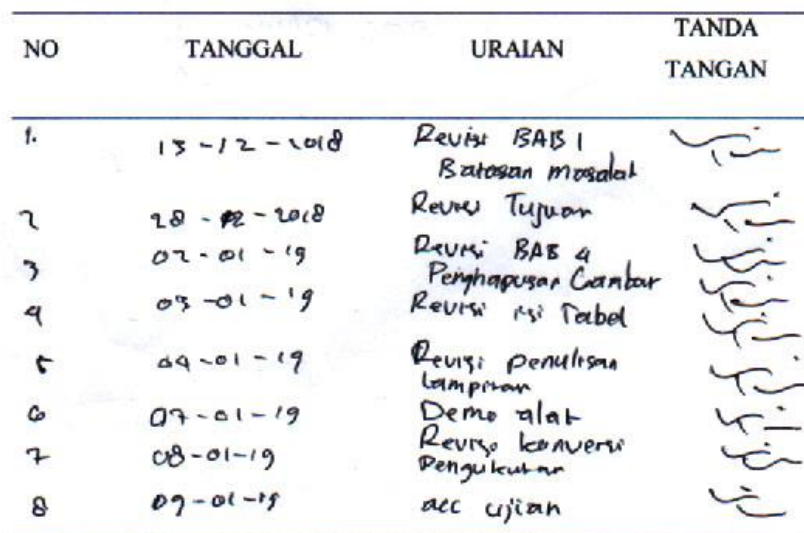 NO TANGGAL URAIAN TANDA TANGAN
1. 13-12-2018 Revisi BAB 1
Batasan masalah
2 28-12-2018 Revisi Tujuan
3 02-01-19 Revisi BAB 4
Penghapusan Gambar
4 03-01-19 Revisi isi Tabel
5 04-01-19 Revisi penulisan
lampiran
6 07-01-19 Demo alat
7 08-01-19 Revisi konversi
Pengukuran
8 09-01-19 acc ujian